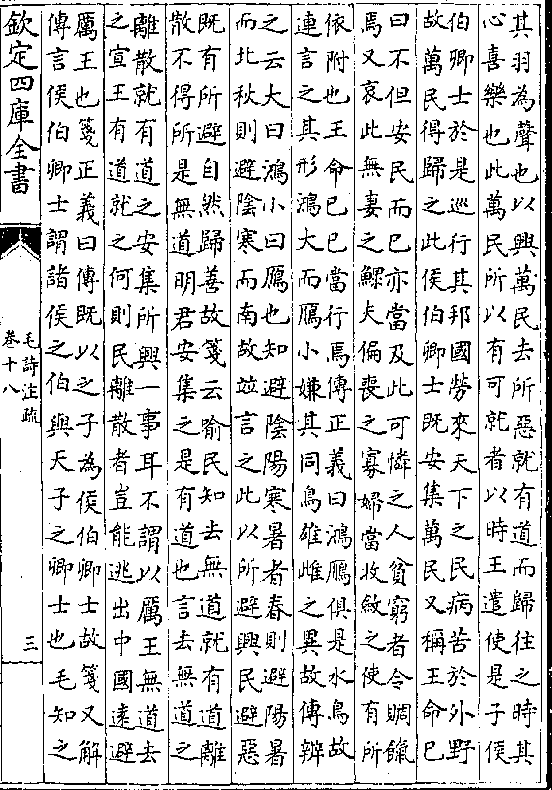 其羽為聲也以興萬民去所惡就有道而歸往之時其
心喜樂也此萬民所以有可就者以時王遣使是子侯
伯卿士於是巡行其邦國勞來天下之民病苦於外野
故萬民得歸之此侯伯卿士既安集萬民又稱王命已
曰不但安民而已亦當及此可憐之人貧窮者令賙餼
焉又哀此無妻之鰥夫偏喪之寡婦當收斂之使有所
依附也王命已已當行焉傳正義曰鴻鴈俱是水鳥故
連言之其形鴻大而鴈小嫌其同鳥雄雌之異故傳辨
之云大曰鴻小曰鴈也知避陰陽寒暑者春則避陽暑
而北秋則避陰寒而南故竝言之此以所避興民避惡
既有所避自然歸善故箋云喻民知去無道就有道離
散不得所是無道明君安集之是有道也言去無道之
離散就有道之安集所興一事耳不謂以厲王無道去
之宣王有道就之何則民離散者豈能逃出中國遠避
厲王也箋正義曰傳既以之子為侯伯卿士故箋又解
傳言侯伯卿士謂諸侯之伯與天子之卿士也毛知之
欽定四庫全書
毛詩注疏
卷十八
三